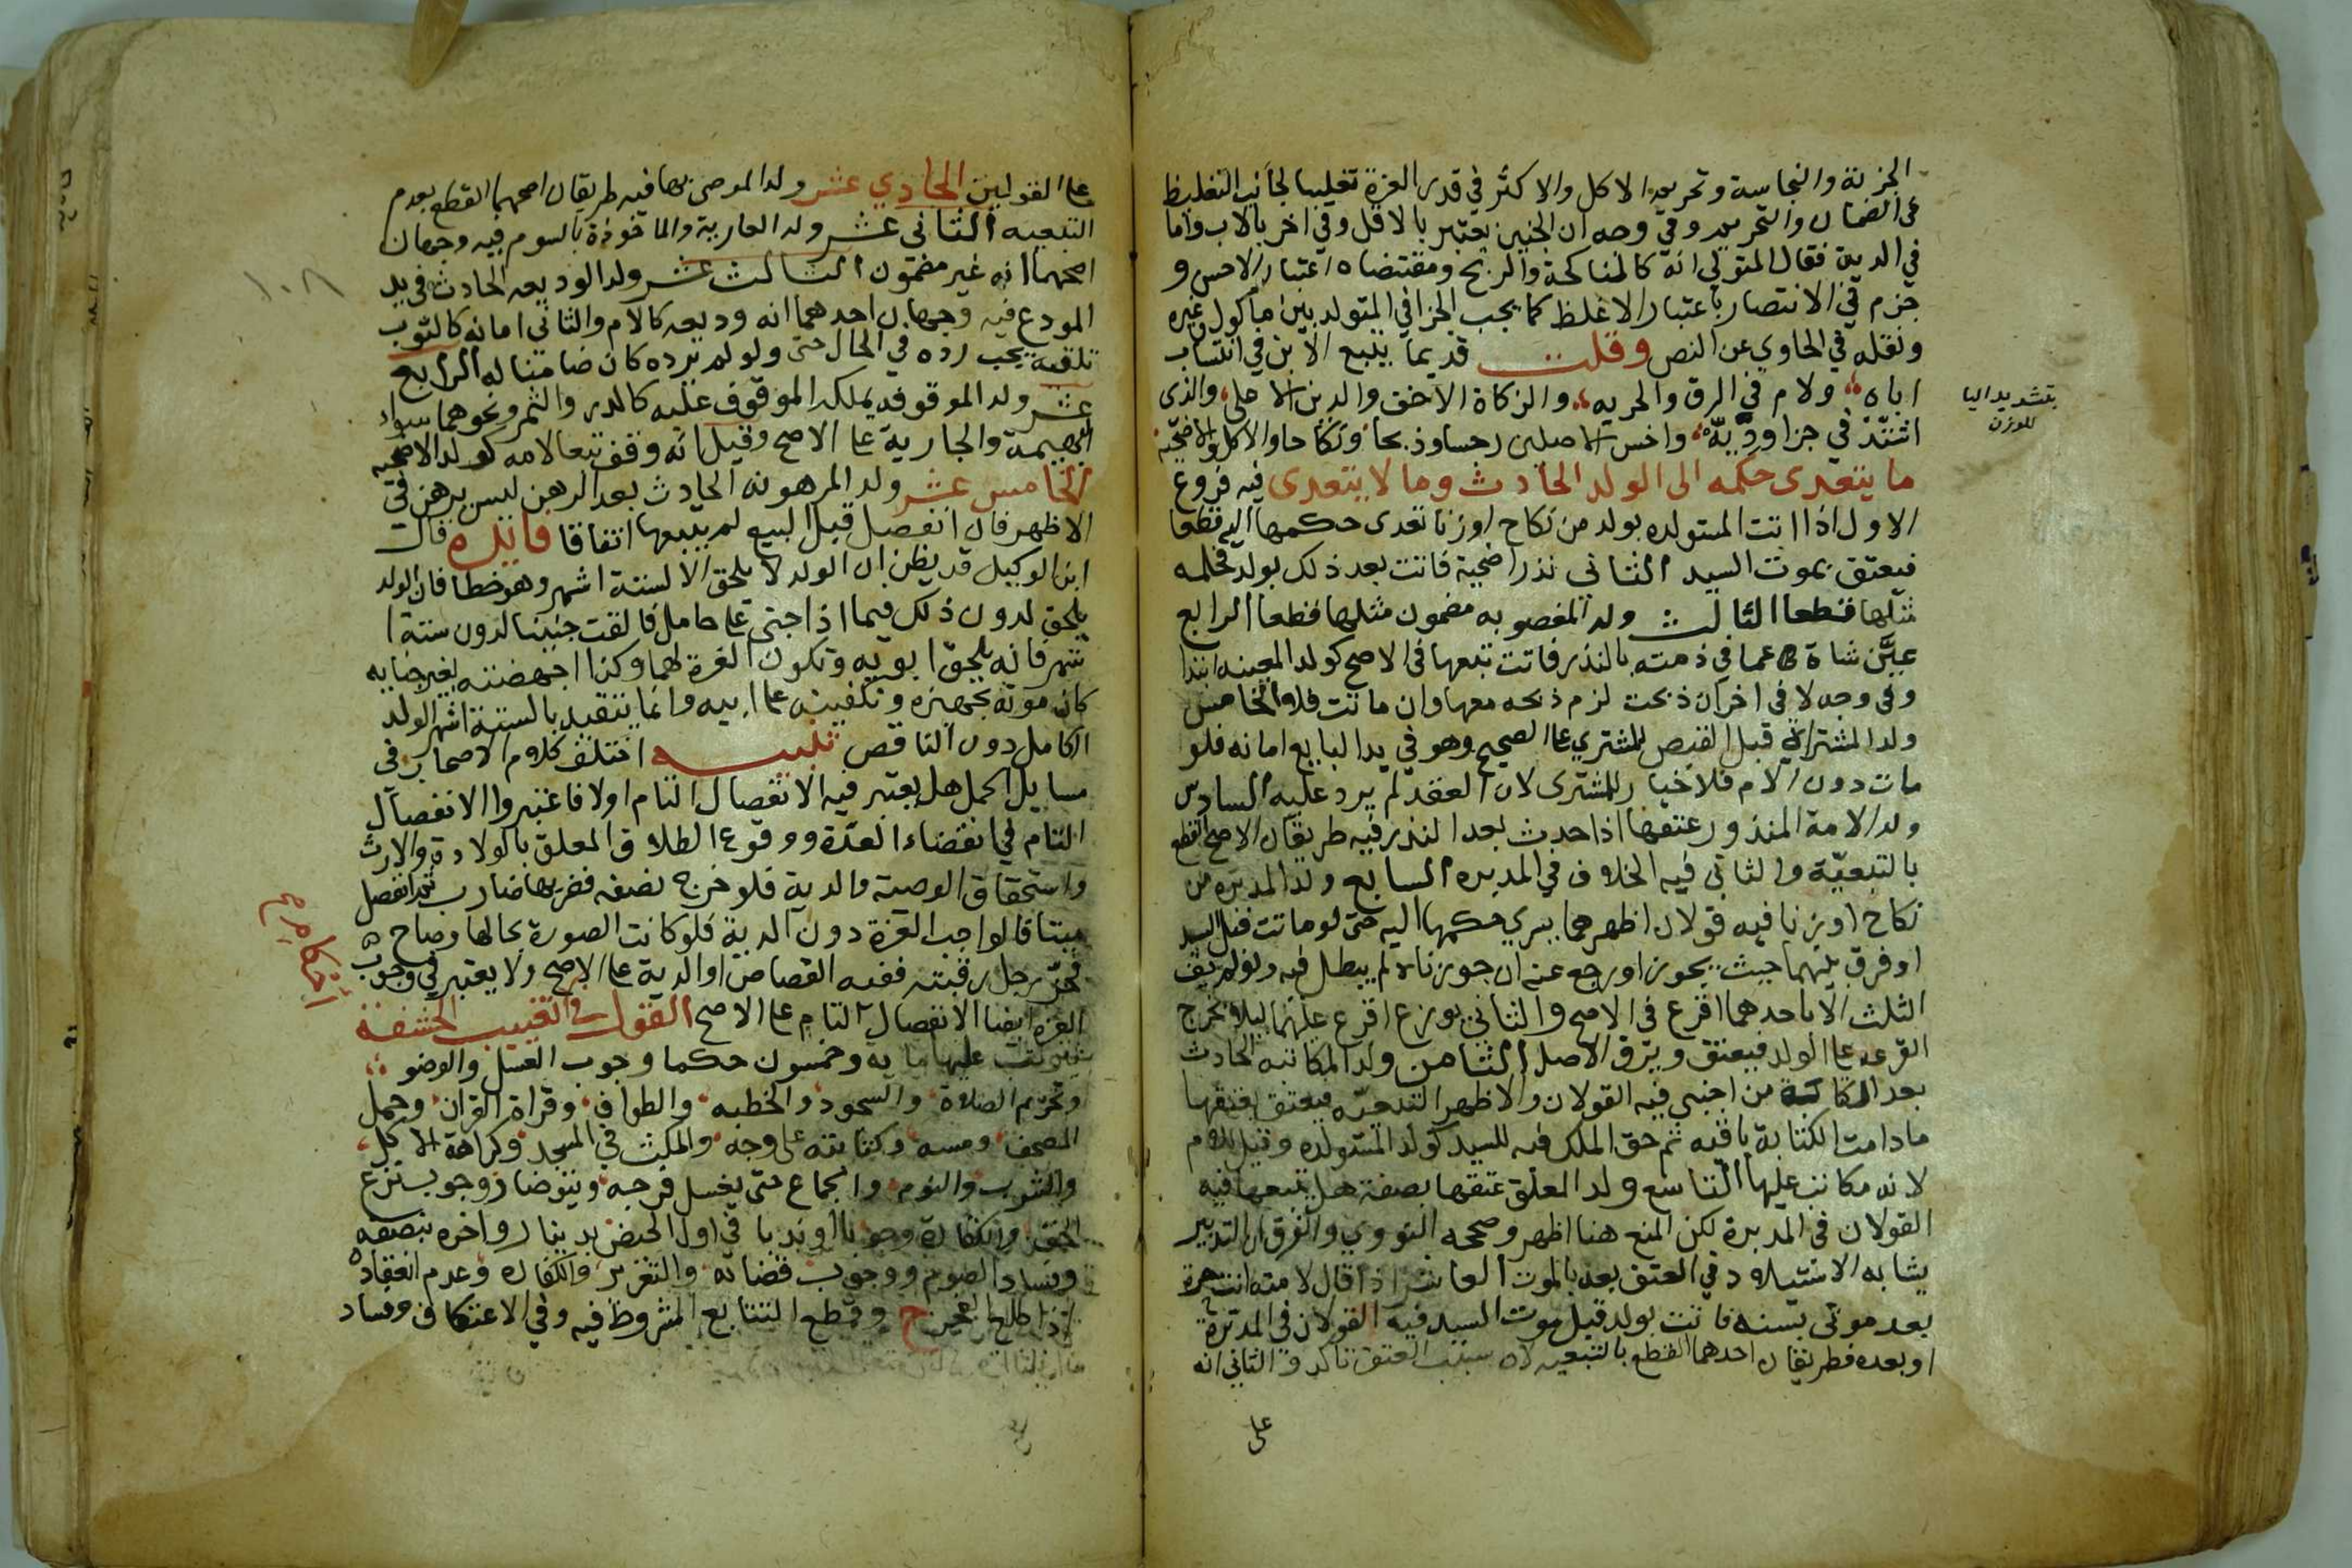 الجزية والنجاسة وتحريم الاكل والاكثر في قدر الغرة تغليبا لجانب التغليظ
في الضمان والتحريم وفي وجه ان الجنين يعتبر بالاقل وفي اخر بالاب واما
في الدية فقال المتولي انه كالمناكحة والربح ومقتضاه اعتبار الاخس و
جزم في الانتصار باعتبار الاغلظ كما يجب الجزا في المتولد بين ماكول وغيره
ونقله في الحاوي عن النص وقلت قديما يتبع الابن في انتساب
اباه ولام في الرق والحريه والزكاة الاخف والدين الاعلى والذى
اشتد في جزا وديه واخس الاصلين رجسا وذبحا ونكاحا والاكل والاضحيه
ما يتعدى حكمه الى الولد الحادث وما لا يتعدى فيه فروع
الاول اذا اتت المستولده بولد من نكاح اوزنا تعدى حكمها اليه قطعا
فيعتق بموت السيد الثاني نذر اضحية فاتت بعد ذلك بولد فحكمه
مثلها قطعا الثالث ولد المغصوبه مضمون مثلها قطعا الرابع
عين شاة عما في ذمته بالنذر فاتت تبعها في الاصح كولد المعينه ابتدا
وفي وجه لا في اخر ان ذبحت لزم ذبحه معها وان ماتت فلا الخامس
ولد المشتراة قبل القبض للمشتري على الصحيح وهو في يد البايع امانه فلو
مات دون الام فلا خيار للمشترى لان العقد لم يرد عليه السادس
ولد الامة المنذور عتقها اذا حدث بعد النذر فيه طريقان الاصح القطع
بالتبعية والثاني فيه الخلاف في المدبره السابع ولد المدبره من
نكاح اوزنا فيه قولان اظهرهما يسري حكمها اليه حتى لو ماتت قبل السيد
او فرق بينهما حيث يجوز او رجع عنه ان جوزناه لم يبطل فيه ولو لم يف
الثلث الا باحدهما اقرع في الاصح والثاني يوزع اقرع عليهما ليلا تخرج
القرعه على الولد فيعتق ويرق الاصل الثامن ولد المكاتبه الحادث
بعد الكتابة من اجنبي فيه القولان والاظهر التبعيه فيعتق بعتقها
مادامت الكتابة باقيه ثم حق الملك فيه للسيد كولد المستولده وقيل للام
لانه مكاتب عليها التاسع ولد المعلق عتقها بصفة هل يتبعها فيه
القولان في المدبرة لكن المنع هنا اظهر وصححه النووي والفرق ان التدبير
يشابه الاستيلاد في العتق بعد بالموت العاشر اذا قال لامته انت حرة
بعد موتي بسنه فاتت بولد قبل موت السيد فيه القولان في المدبرة
او بعده فطريقان احدهما القطع بالتبعيه لان سبب العتق تاكد والثاني انه
على
بتشديد اليا
للوزن
على القولين الحادي عشر ولد الموصى بها فيه طريقان اصحهما القطع بعدم
التبعيه الثاني عشر ولد العارية والماخوذة بالسوم فيه وجهان
اصحهما انه غير مضمون الثالث عشر ولد الوديعه الحادث في يد
المودع فيه وجهان احدهما انه وديعه كالام والثاني امانه كالثوب
تلقيه يجب رده في الحال حتى ولو لم يرده كان ضامنا له الرابع
عشر ولد الموقوفه يملكه الموقوف عليه كالدر والثمر ونحوهما سواء
البهيمة والجارية على الاصح وقيل انه وقف تبعا لامه كولد الاضحيه
الخامس عشر ولد المرهونه الحادث بعد الرهن ليس برهن في
الاظهر فان انفصل قبل البيع لم يتبعها اتفاقا فائده قال
ابن الوكيل قد يظن ان الولد لا يلحق الا لستة اشهر وهو خطا فان الولد
يلحق لدون ذلك فيما اذا جنى على حامل فالقت جنينا لدون ستة ا
شهر فانه يلحق ابويه وتكون الغرة لهما وكذا اجهضته لغير جنايه
كان مونة تجهيزه وتكفينه على ابيه وانما يتقيد بالستة اشهر الولد
الكامل دون الناقص تنبيه اختلف كلام الاصحاب في
مسايل الحمل هل يعتبر فيه الانفصال التام اولا فاعتبروا الانفصال
التام في انقضاء العدة ووقوع الطلاق المعلق بالولادة والارث
واستحقاق الوصية والدية فلو خرج نصفه فضربها ضارب ثم انفصل
ميتا فالواجب الغرة دون الدية فلو كانت الصورة بحالها وصاح
فحز رجل رقبته ففيه القصاص او الدية على الاصح ولا يعتبر في وجوب
الغرة ايضا الانفصال التام على الاصح القول في تغييب الحشفة
يترتب عليها مايه وخمسون حكما وجوب الغسل والوضو
وتحريم الصلاة والسجود والخطبه والطواف وقراة القران وحمل
المصحف ومسه وكتابته على وجه والمكث في المسجد وكراهة الاكل
والشرب والنوم والجماع حتى يغسل فرجه ويتوضا ووجوب نزع
الخف والكفارة وجوبا اوندبا في اول الحيض بدينار واخره بنصفه
وفساد الصوم ووجوب قضائه والتعزير والكفاره وعدم انعقاده
اذا طلع الفجر ح وقطع التتابع المشروط فيه وفي الاعتكاف وفساد
١٠٨